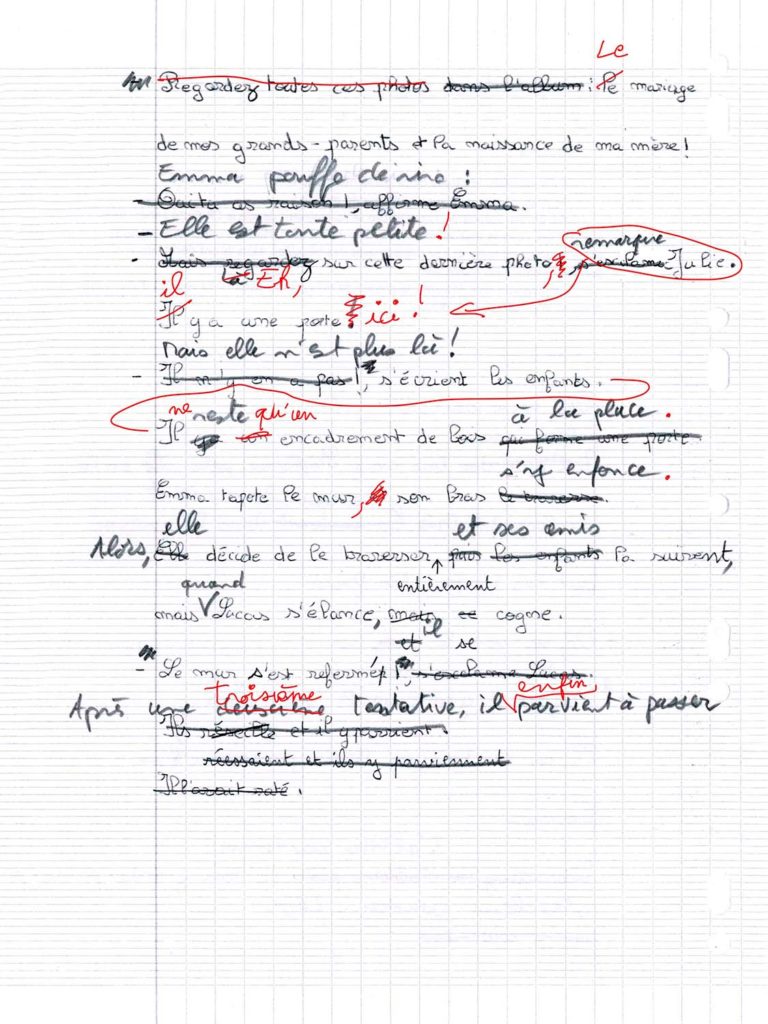 Le
Regardez toutes ces photos dans l'album : le mariage
de mes grands-parents et la naissance de ma mère !
Emma pouffe de rire :
- Oui tu as raison !, affirme Emma.
- Elle est toute petite !
remarque
- Mais regardez sur cette dernière photo, s'exclame Julie.
il là Eh,
Il y a une porte ici !
Mais elle n'est plus là !
- Il n'y en a pas !, s'écrient les enfants.
ne reste qu'un à la place.
Il un encadrement de bois qui forme une porte
s'y enfonce.
Emma tapote le mur, son bras le traverse.
elle et ses amis
Alors, Elle décide de le traverser, puis les enfants la suivent,
quand entièrement
mais Lucas s'élance, mais se cogne.
et il se
- Le mur s'est refermé !, s'exclame Lucas.
troisième enfin
Après une deuxième tentative, il parvient à passer
Ils et il y parvient.
réessaient et ils y parviennent
Il l'avait raté.